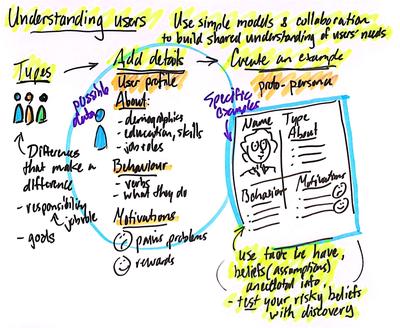 Understanding users
Use simple models & collaboration
to build shared understanding of users' needs
Types
Differences
that make a
difference
- responsibility
jobrole
- goals
Add details
User profile
possible
data
About:
- demographics
- education, skills
- job roles
Behaviour
- verbs
- what they do
Motivations
pains problems
rewards
Create an example
proto-persona
Specific
examples
Name
Type
About
Behavior
Motivations
Use facts we have,
beliefs (assumptions)
anecdotal info,
- test your risky beliefs
with discovery